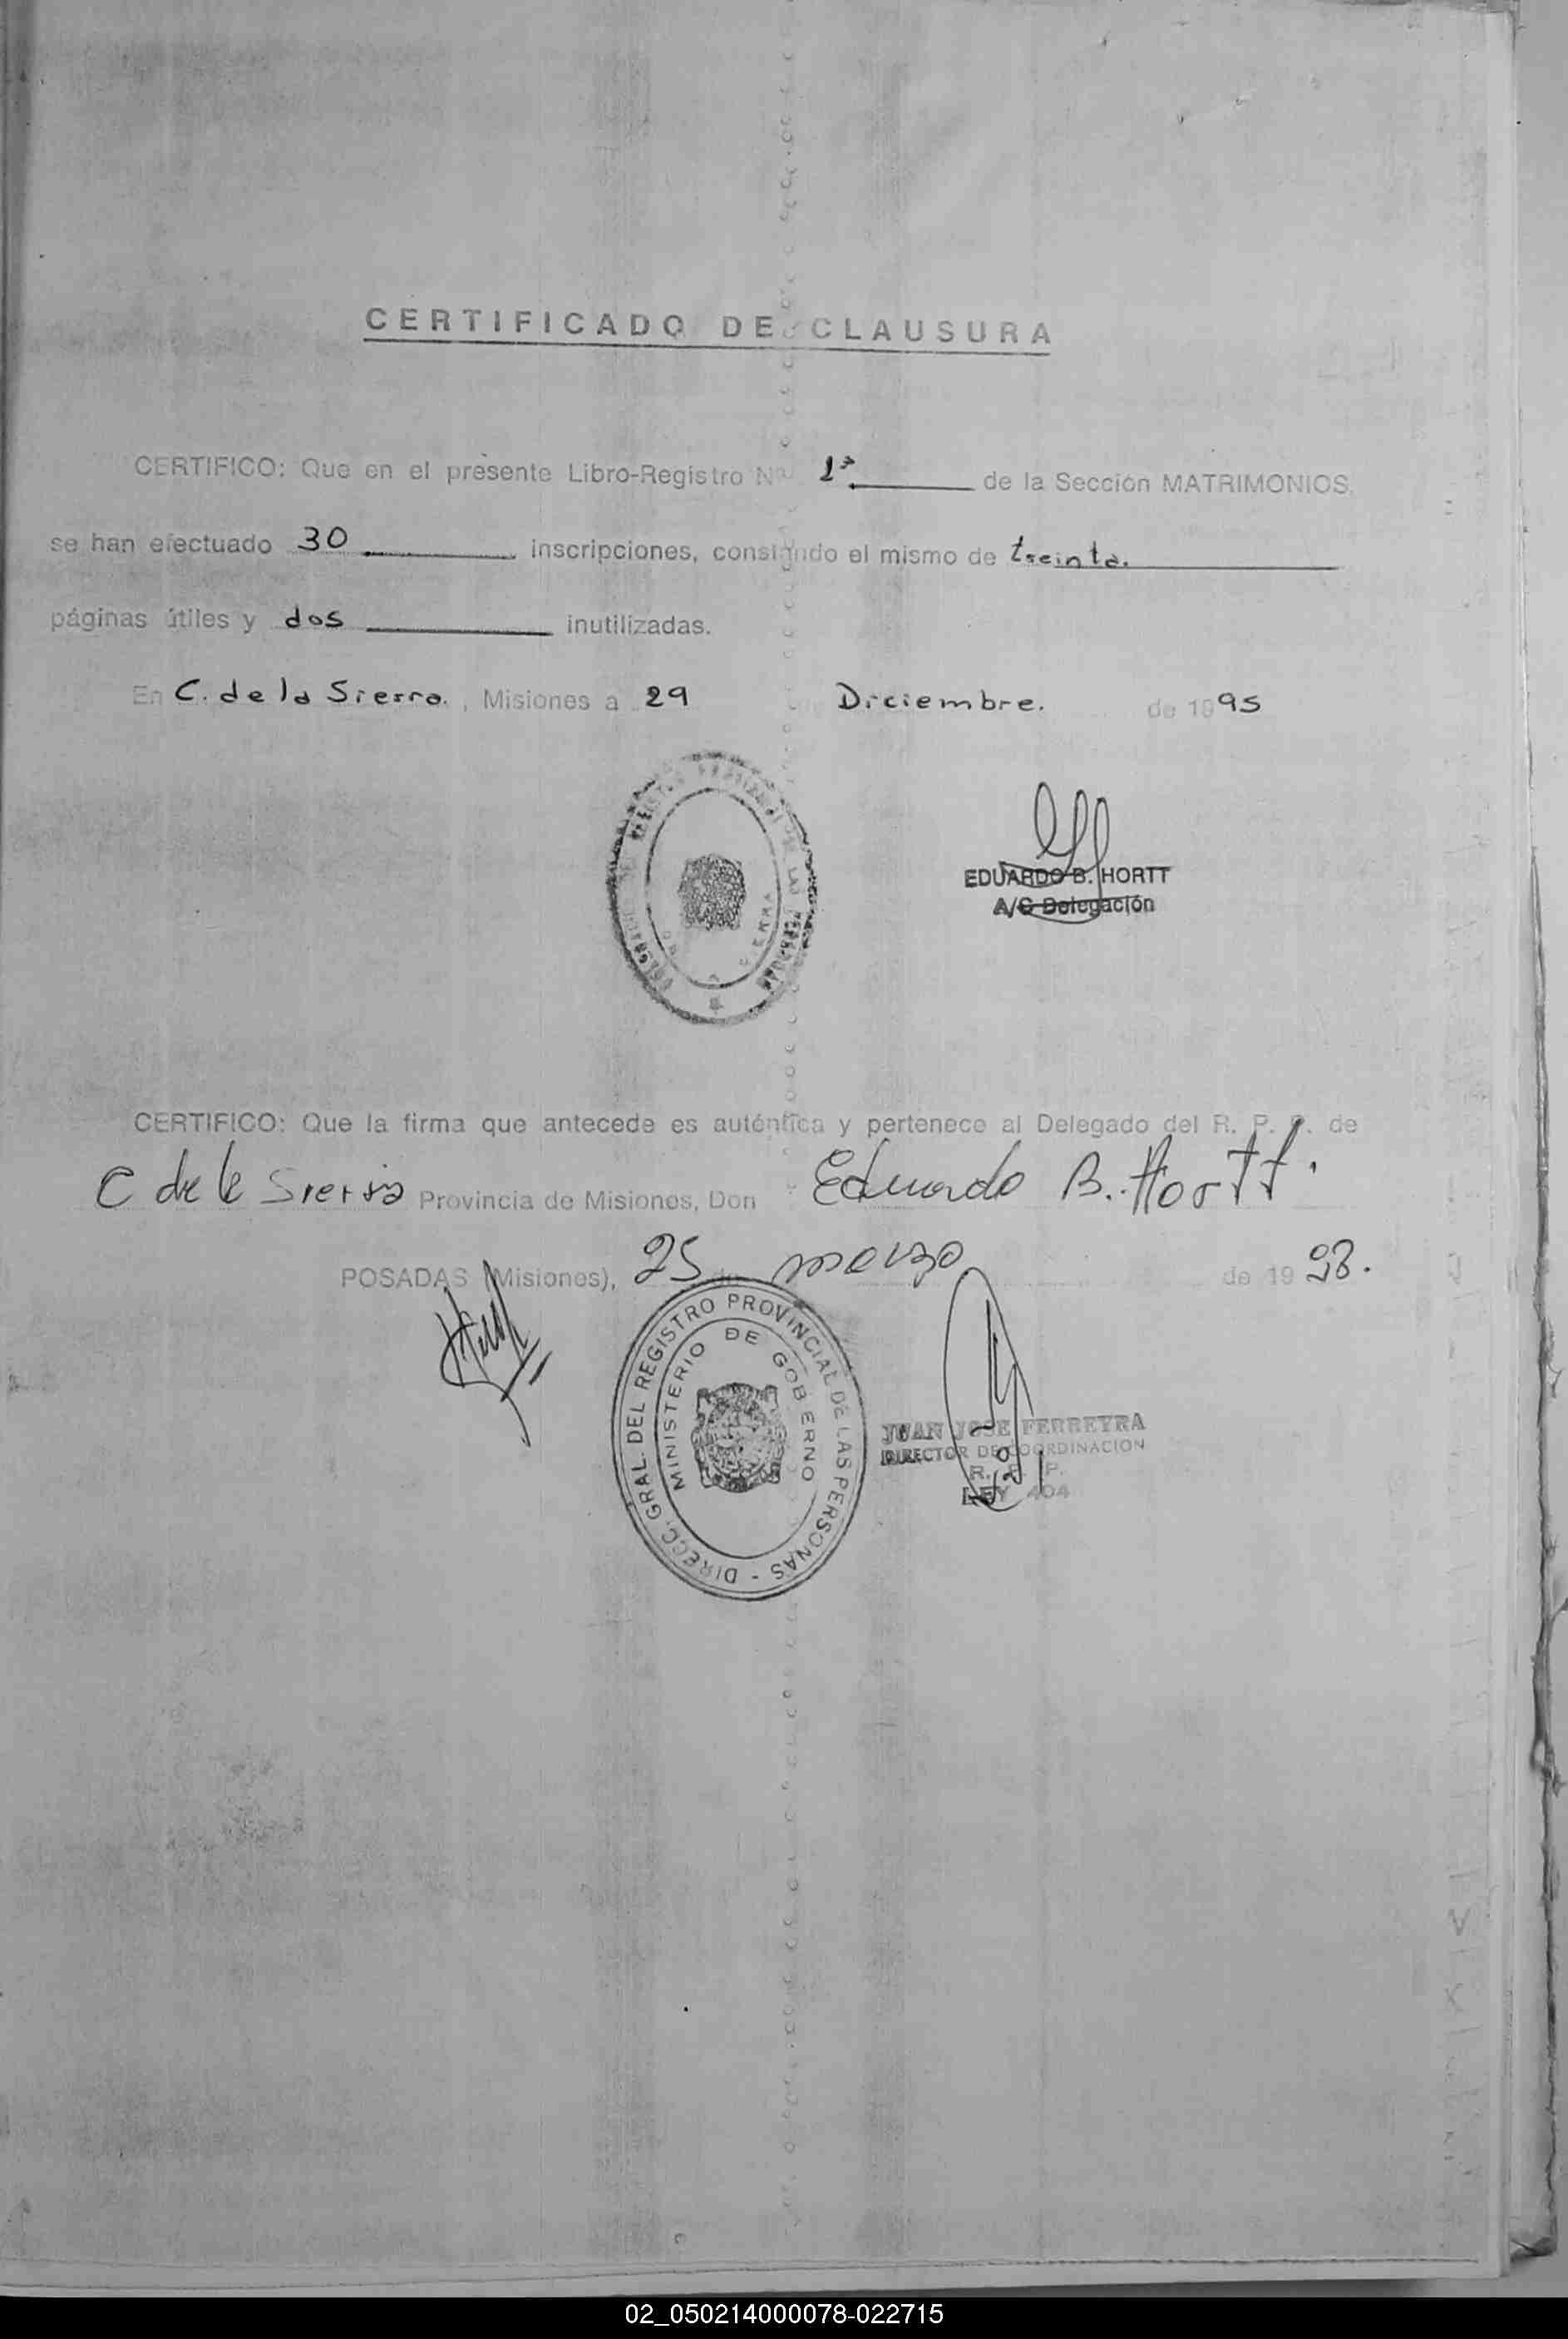 CERTIFICADO DE CLAUSURA
CERTIFICO: Que en el presente Libro-Registro Nº 1º de la Sección MATRIMONIOS,
se han efectuado 30 inscripciones, constando el mismo de treinta.
páginas útiles y dos inutilizadas.
En C. de la Sierra. , Misiones a 29 de Diciembre. de 1995
EDUARDO B. HORTT
A/C Delegación
CERTIFICO: Que la firma que antecede es auténtica y pertenece al Delegado del R. P. P. de
C de la Sierra Provincia de Misiones, Don Eduardo B. Hortt.
POSADAS (Misiones), 25 de marzo de 1998.
DIRECC. GRAL. DEL REGISTRO PROVINCIAL DE LAS PERSONAS -
MINISTERIO DE GOBERNO
JUAN JOSE FERREYRA
DIRECTOR DE COORDINACION
R. P. P.
LEY 404
02_050214000078-022715